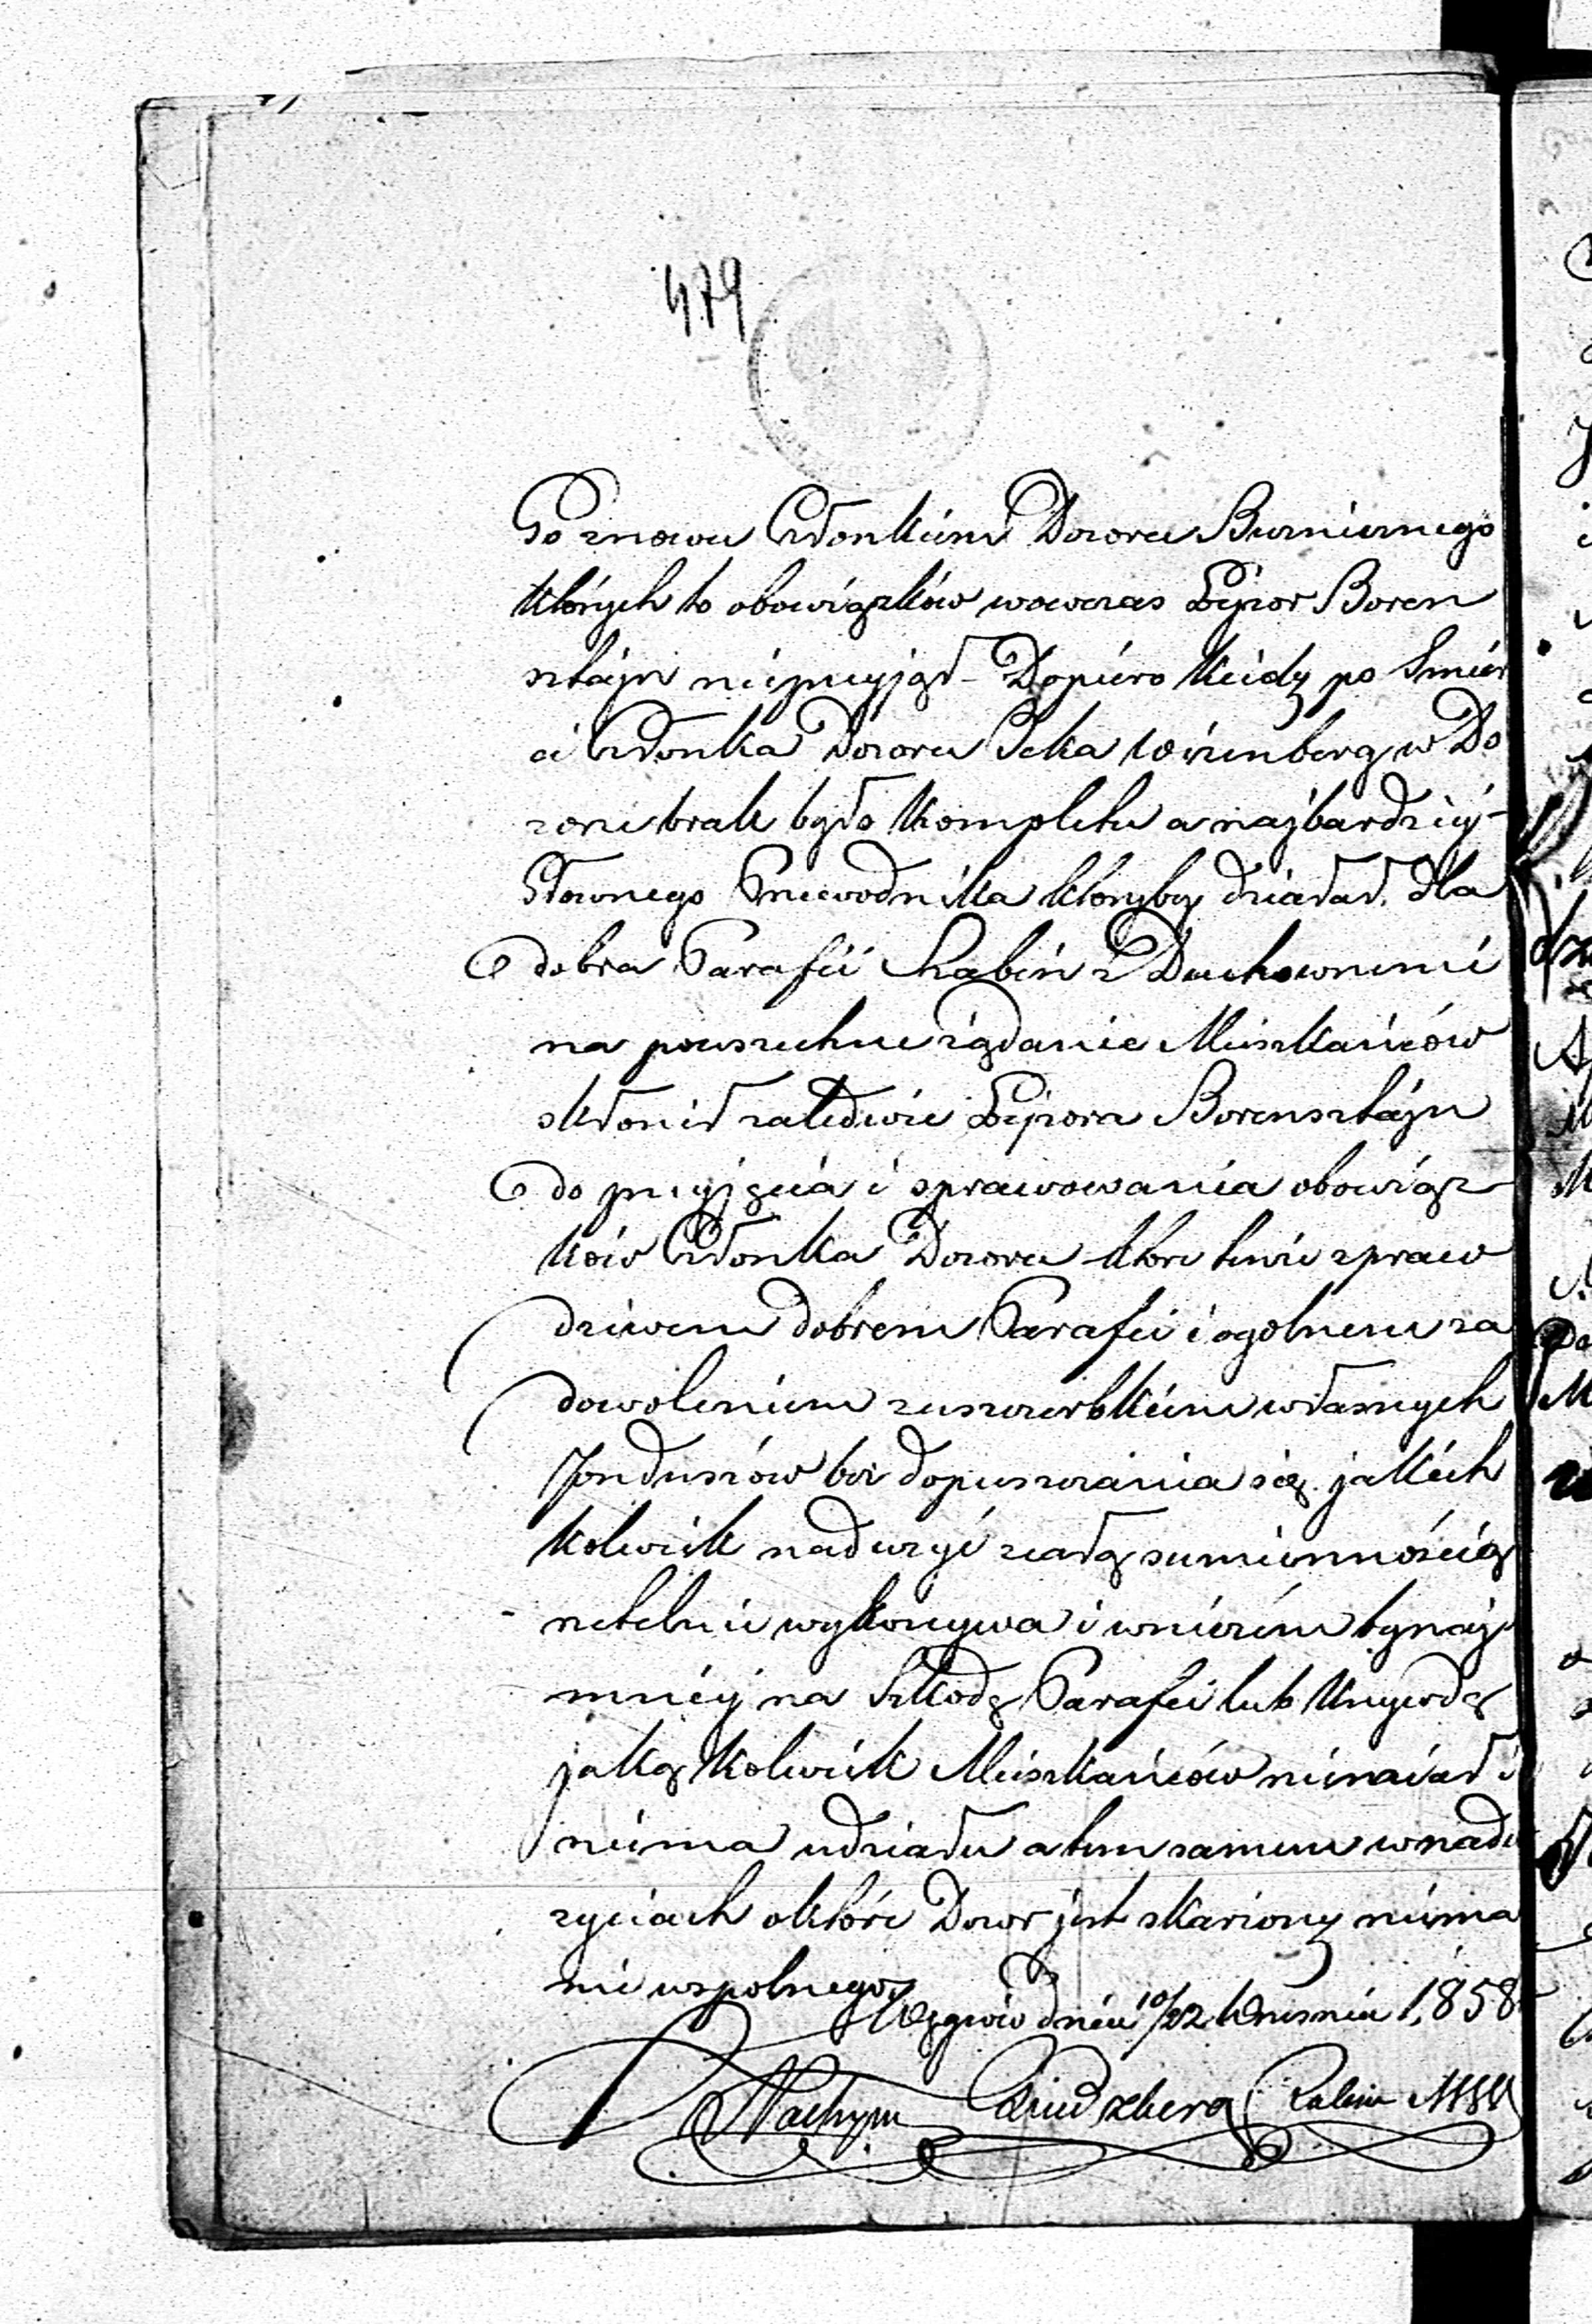 479
Go znowu Członkiem Dozoru Bużnicznego
których to obowiązków wowczas Lejzor Boren
sztajn nieprzyjął – Dopiero kiedy po Smier
ci Członka Dozoru Icka Wizenberg w Do
zorze brak było kompletu a najbardziej
Głownego Przewodnika któryby działał dla
dobra Parafii Rabin z Duchownemi
na powszechne żądanie Mieszkańców
skłonił zaledwie Lejzora Borensztajn
do przyjęcia i sprawowania obowiąz
ków Członka Dozoru które tenże zpraw
dziwem dobrem Parafii i ogolnem za
dowoleniem zuszczerbkiem własnych
Funduszów bez dopuszczania się jakich
kolwiek nadużyć zcałą sumiennością
rzetelnie wykonywa i wniczém bynaj
mniéj na Szkodę Parafii lub krzywdę
jaką kolwiek Mieszkańców niemiał i
niema udziału a tem samem wnadu
życiach októre Dozor jest skarżony niema
nic wspolnego
dnia 10/22 Wrzesnia 1858
Nachym Rabin